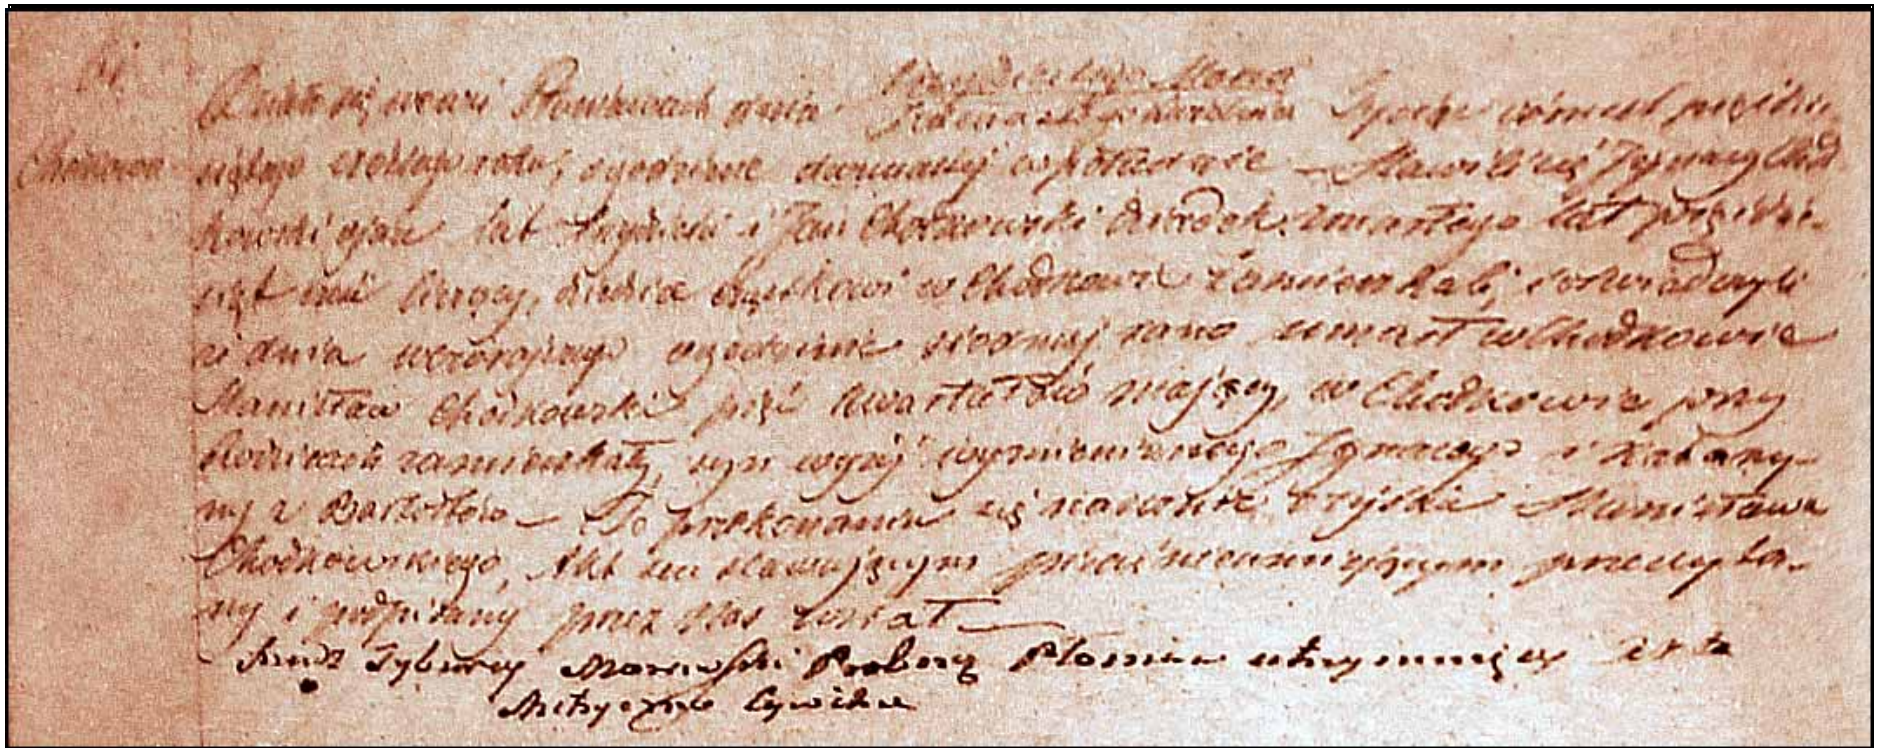 Działo się wewsi Płoniawach dnia Tysiąc ośmset pięćdzie
Chodkowo
siątego roku, ogodzinie w południe Stawili się Ignacy Chod
kowski ojciec lat trzydzieści i Jan Chodkowski dziadek zmarłego lat pięćdzie-
siąt liczący, cząstkowi w Chodkowie zamieszkali, i oświadczyli
iż dnia wczorajszego ogodzinie siódmej rano umarł w Chodkowie
Stanisław Chodkowski pięć kwartałów mający, w Chodkowie przy
Rodzicach zamieszkały, syn wyżej wymienionego Ignacego i Katarzy-
ny z Bartołtów – Po przekonaniu się naocznie o zejściu Stanisława
Chodkowskiego, Akt ten stawającym przeczyta-
ny i podpisany przez Nas został –
Xiądz Tyburcy Proboszcz Płoniaw utrzymujący Akta
Metryczne Cywilne